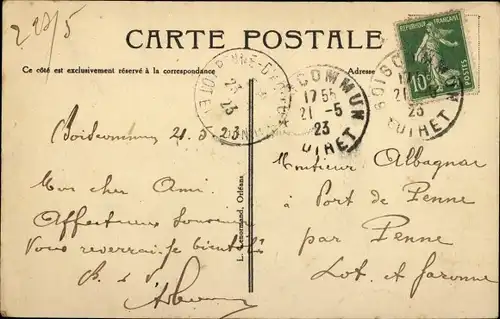 223/5
CARTE POSTALE
Ce côté est exclusivement réservé à la correspondance
Adresse
RÉPUBLIQUE FRANÇAISE
10c
COMMUN
17 55
21 - 5
23
LOIRET
BOISCOMMUN
17
21
23
LOIRET
PENNE-D'AGENAIS
23
23
Boiscommun 21.5.23
Mon cher Ami.
Affectueux Souvenir
Vous reverrai-je bientôt
B. à V
L. Lenormand, Orléans
Monsieur Albagnac
à Port de Penne
par Penne
Lot. et Garonne